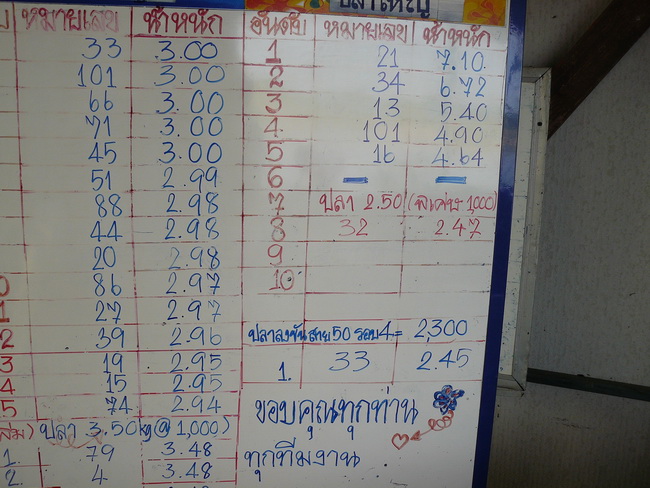 ปลาใหญ่
หมายเลข น้ำหนัก อันดับ หมายเลข น้ำหนัก
33 3.00 1 21 7.10
101 3.00 2 34 6.72
66 3.00 3 13 5.40
71 3.00 4 101 4.90
45 3.00 5 16 4.64
51 2.99 6 — —
88 2.98 7 ปลา 2.50 (พิเศษ 1,000)
44 2.98 8 32 2.47
20 2.98 9
0 86 2.97 10
1 27 2.97
2 39 2.96 ปลาลงขัน สาย 50 รอบ 4 = 2,300
3 19 2.95 1. 33 2.45
4 15 2.95
5 74 2.94 ขอบคุณทุกท่าน
ปลา 3.50 kg @ 1,000)
1. 79 3.48 ทุกทีมงาน
2. 4 3.48